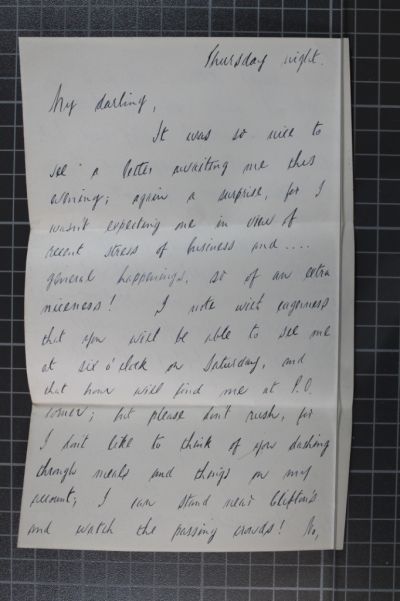 Thursday night.
My darling,
It was so nice to
see a letter awaiting me this
evening; again a surprise, for I
wasn't expecting one in view of
recent stress of business and ....
general happenings, so of an extra
niceness! I note with eagerness
that you will be able to see me
at six o'clock on Saturday, and
that hour will find me at P.O.
corner; but please don't rush, for
I don't like to think of you dashing
through meals and things on my
account; I can stand near
and watch the passing crowds! No,